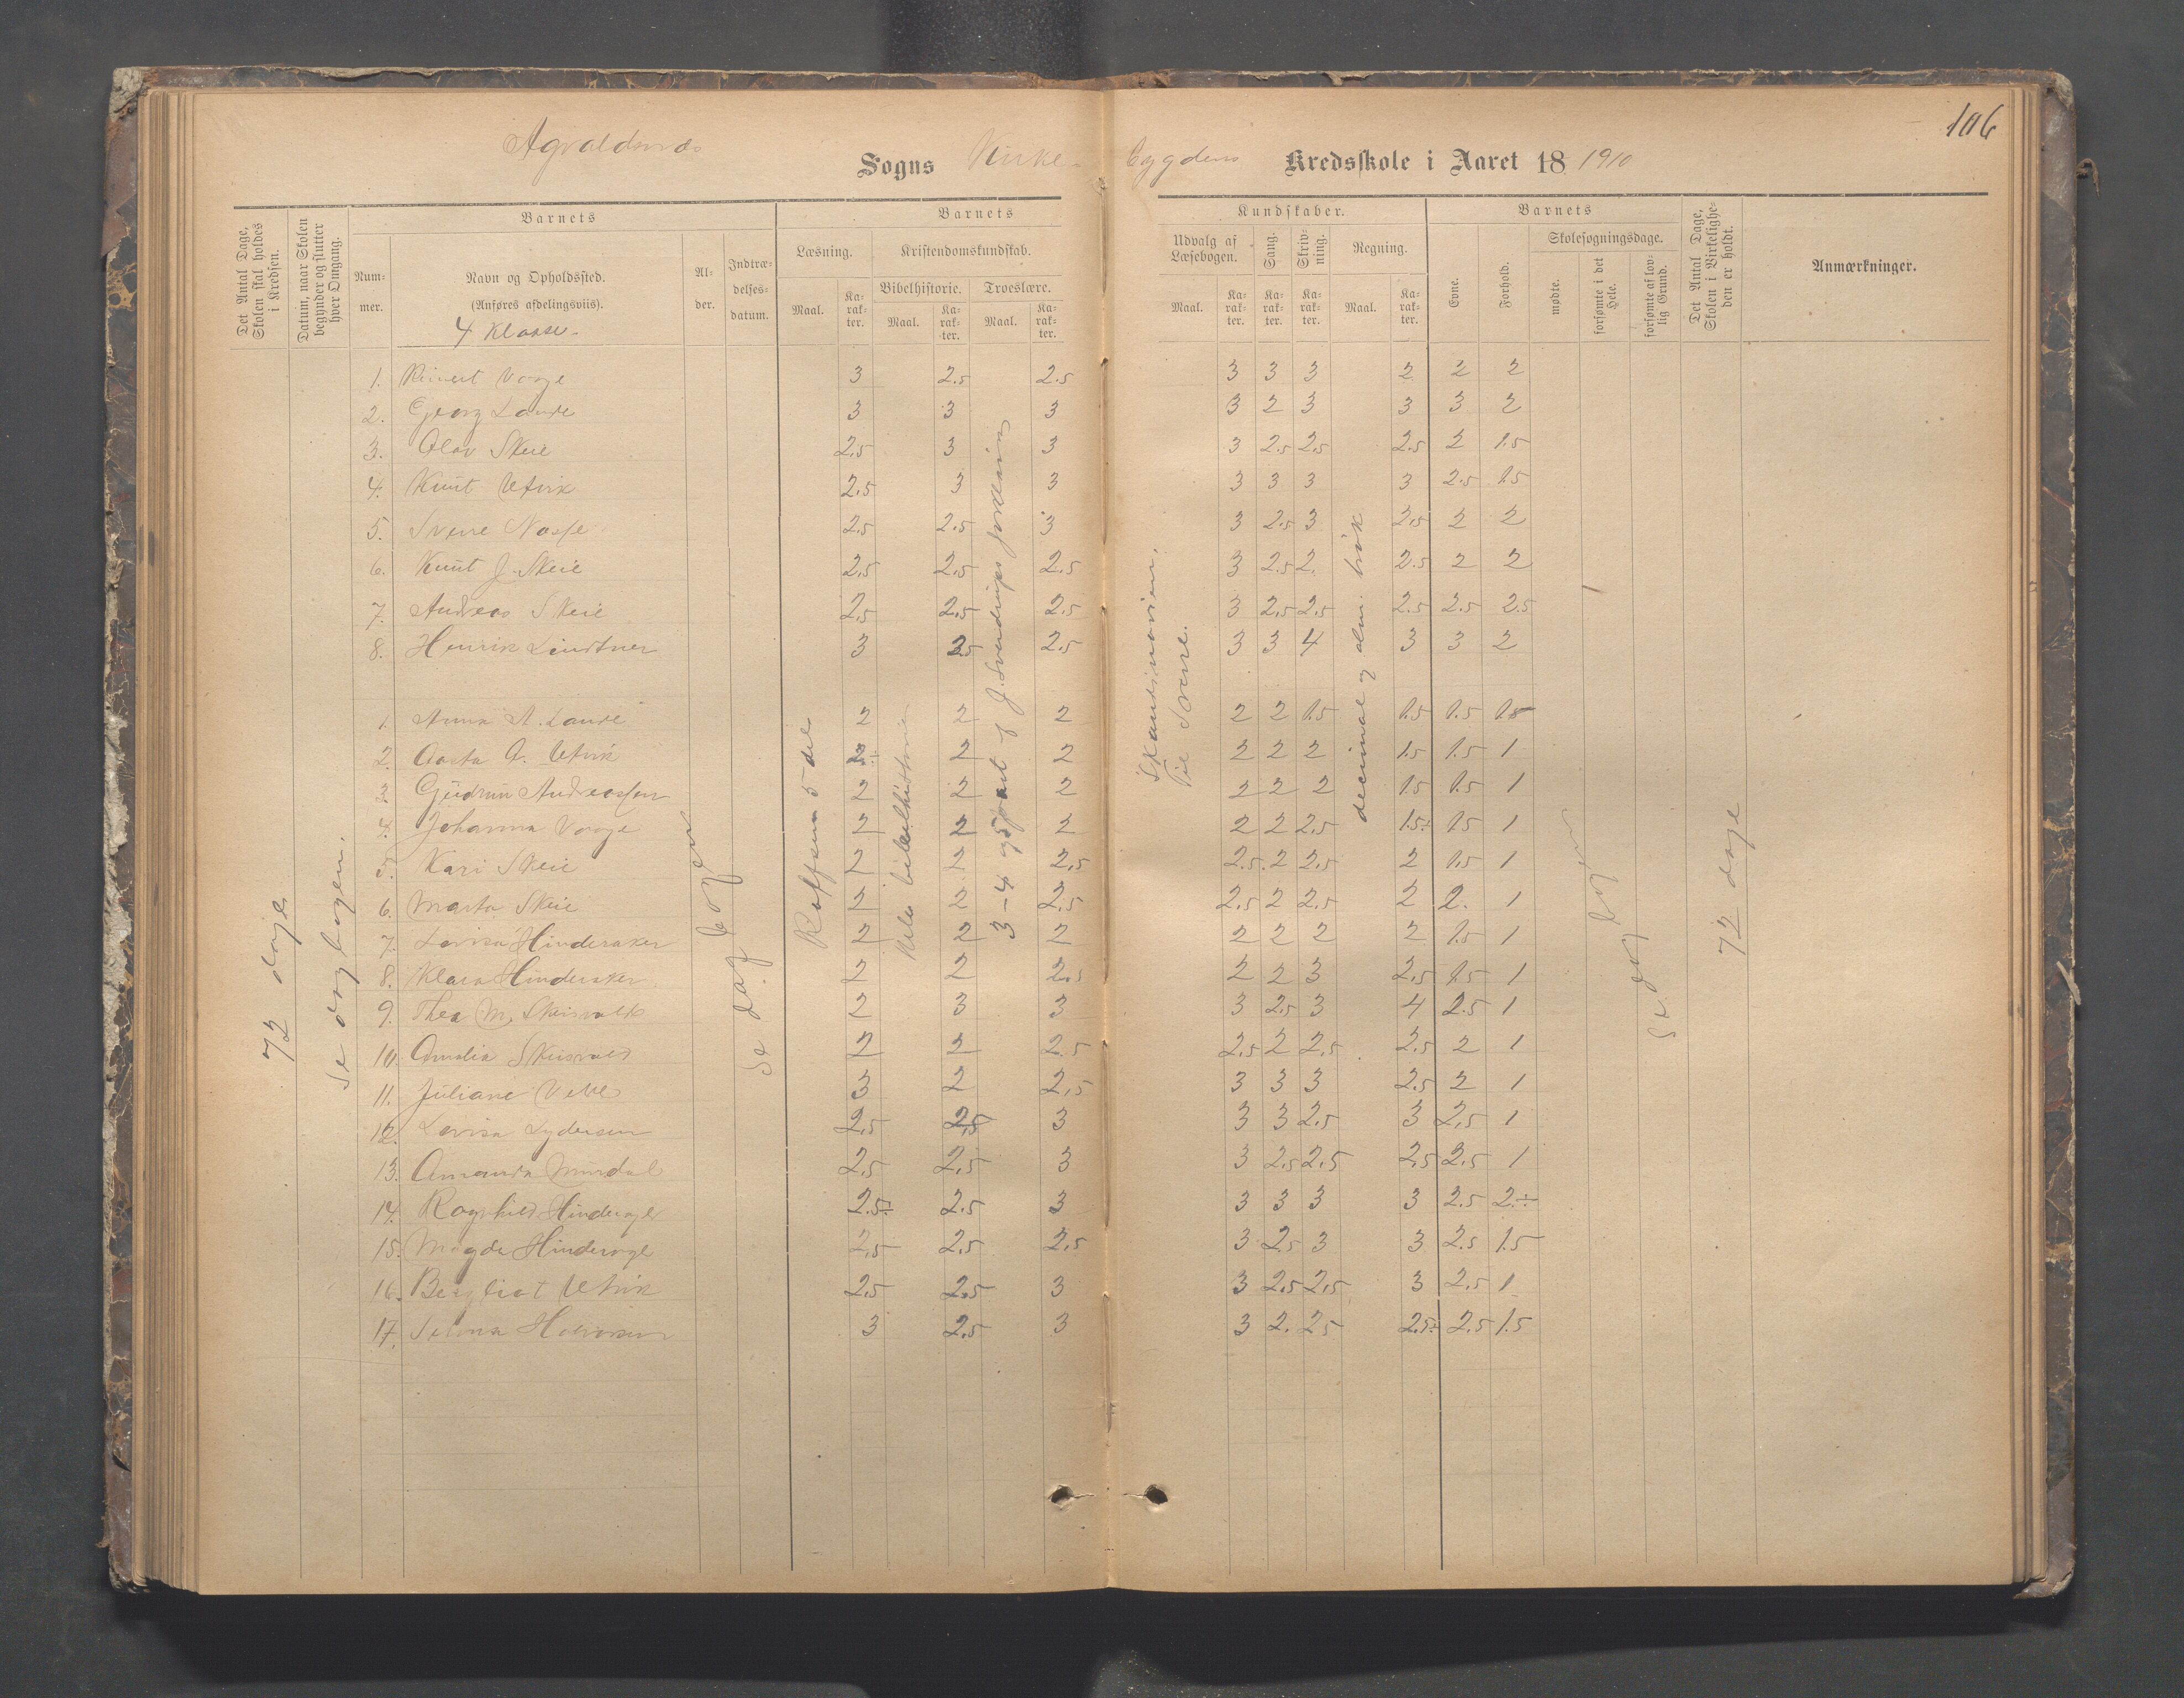 106
Agvaldsnæs Sogns Kirke-
bygdens Kredsskole i Aaret 18 1910
Det Antal Dage, Skolen skal holdes i Kredsen.
Datum, naar Skolen begynder og slutter hver Omgang.
Barnets
Num-
mer.
Navn og Opholdssted.
(Anføres afdelingsviis).
4 Klasse.
Al-
der.
Indtræ-
delses-
datum.
Barnets
Læsning.
Kristendomskundskab.
Bibelhistorie.
Troeslære.
Maal.
Ka-
rak-
ter.
Maal.
Ka-
rak-
ter.
Maal.
Ka-
rak-
ter.
Kundskaber.
Udvalg af
Læsebogen.
Sang.
Skriv-
ning.
Regning.
Maal.
Ka-
rak-
ter.
Ka-
rak-
ter.
Ka-
rak-
ter.
Maal.
Ka-
rak-
ter.
Barnets
Evne.
Forhold.
Skolesøgningsdage.
mødte.
forsømte i det Hele.
forsømte af lov-
lig Grund.
Det Antal Dage, Skolen i Virkelighe-
den er holdt.
Anmærkninger.
1. Reinert Vorge 3 2.5 2.5 3 3 3 2 2 2
2. Georg Lande 3 3 3 3 2 3 3 3 2
3. Olav Skeie 2.5 3 3 3 2.5 2.5 2.5 2 1.5
4. Knut Utvik 2.5 3 3 3 3 3 3 2.5 1.5
5. Sverre 2.5 2.5 3 3 2.5 3 2.5 2 2
6. Knut J. Skeie 2.5 2.5 2.5 3 2.5 2. 2.5 2 2
7. Andreas Skeie 2.5 2.5 2.5 3 2.5 2.5 2.5 2.5 2.5
8. Henrik Lindtner 3 2.5 2.5 3 3 4 3 3 2
1. Anna A. Lande 2 2 2 2 2 1.5 1.5 1.5 1.5
2. Aasta G. Utvik 2÷ 2 2 2 2 2 1.5 1.5 1
3 Gudrun Andreassen 2 2 2 2 2 2 1.5 1.5 1
4. Johanna Vorge 2 2 2 2 2 2.5 1.5÷ 1.5 1
5. Kari Skeie 2 2 2.5 2.5 2 2.5 2 1.5 1
6. Marta Skeie 2 2 2.5 2.5 2 2.5 2 2. 1
7. Lovisa Hinderaker 2 2 2 2 2 2 2 1.5 1
8. Klara Hinderaker 2 2 2.5 2 2 3 2.5 1.5 1
9. Thea M. Skeisvold 2 3 3 3 2.5 3 4 2.5 1
10. Amalia Skeisvold 2 2 2.5 2.5 2 2.5 2.5 2 1
11. Juliane 3 2 2.5 3 3 3 2.5 2 1
12. Lovisa Lydersen 2.5 2.5 3 3 3 2.5 3 2.5 1
13. Amanda Mürdal 2.5 2.5 3 3 2.5 2.5 2.5 2.5 1
14. Ragnhild Hinderager 2.5÷ 2.5 3 3 3 3 3 2.5 2÷
15. Magda Hinderager 2.5 2.5 2.5 3 2.5 3 3 2.5 1.5
16. Bergliot Utvik 2.5 2.5 3 3 2.5 2.5 3 2.5 1
17. Selma Halvorsen 3 2.5 3 3 2. 2.5 2.5÷ 2.5 1.5
72 dage
Se dagbogen.
Se dagbogen
Rolfsens 5 del
Hele bibelhistorien
3-4 og 5 part af J. Sverdrups forklaring
Skandinavien.
Til Sverre.
decimal og alm. brøk
Se dagbogen
72 dage